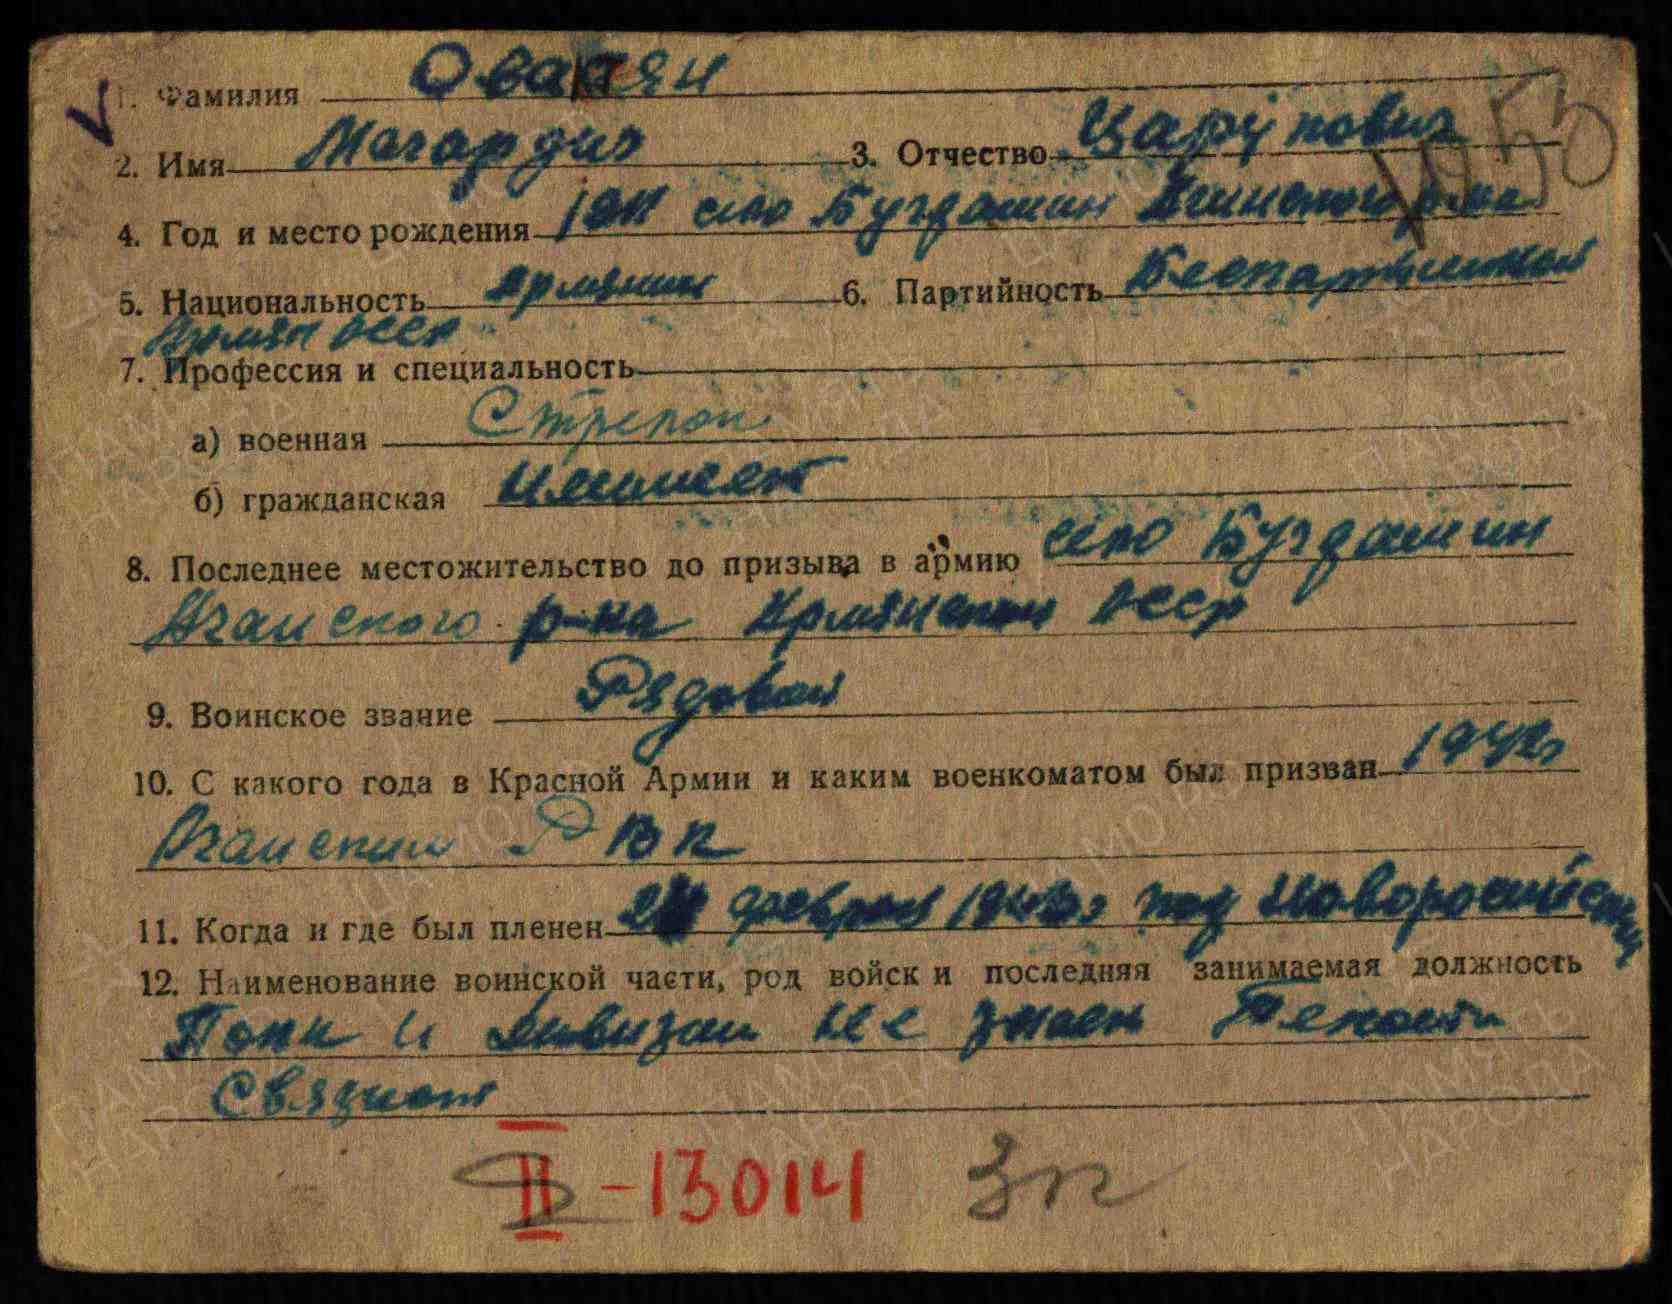 1. Фамилия Овакян
2. Имя Магардич 3. Отчество Царупович
1053
4. Год и место рождения село Бугдашин Агинского р-на
5. Национальность Армянин 6. Партийность Беспартийный
Армян ССР
7. Профессия и специальность
а) военная Стрелок
б) гражданская
8. Последнее местожительство до призыва в армию село Бугдашин
Агинского р-на Армянской ССР
9. Воинское звание Рядовой
10. С какого года в Красной Армии и каким военкоматом был призван 1942г
Агинским РВК
11. Когда и где был пленен февраля 1943г под Новоросийском
12. Наименование воинской части, род войск и последняя занимаемая должность
Полк и дивизии не знаем Пехота
Связной
II-13014 Зп